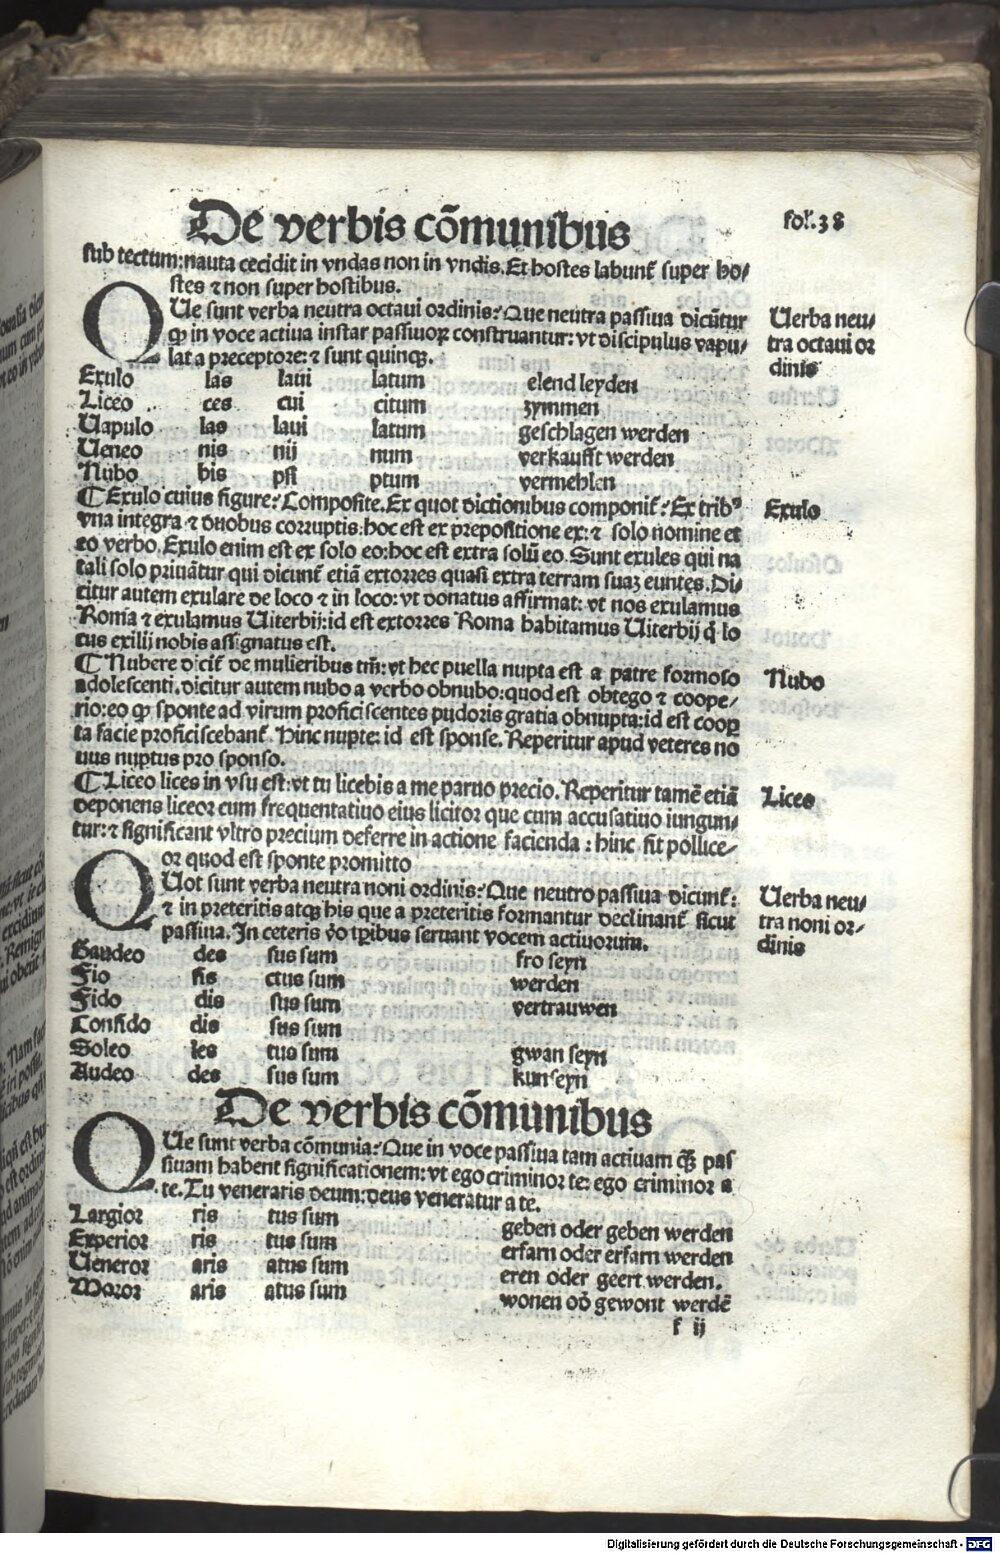 De verbis cõmunibus
fol.38
sub tectum:nauta cecidit in vndas non in vndis.Et hostes labunt̃ super ho/
stes ⁊ non super hostibus.
QUe sunt verba neutra octaui ordinis? Que neutra passiua dicũtur
ꝙ in voce actiua instar passiuoꝝ construantur:vt discipulus vapu/
lat a preceptore:⁊ sunt quinqꝫ.
Uerba neu/
tra octaui or
dinis
Exulo las laui latum elend leyden
Liceo ces cui citum zymmen
Uapulo las laui latum geschlagen werden
Ueneo nis nij num verkaufft werden
Nubo bis psi ptum vermehlen
¶ Exulo cuius figure? Composite. Ex quot dictionibus componit̃? Ex tribꝰ
vna integra ⁊ duobus corruptis:hoc est ex prepositione ex:⁊ solo nomine et
eo verbo. Exulo enim est ex solo eo:hoc est extra solũ eo. Sunt exules qui na
tali solo priuãtur qui dicunt̃ etiã extorres quasi extra terram suaꝫ euntes. Di/
citur autem exulare de loco ⁊ in loco:vt donatus affirmat: vt nos exulamus
Roma ⁊ exulamus Uiterbij:id est extorres Roma habitamus Uiterbij q̇ lo
cus exilij nobis assignatus est.
Exulo
¶ Nubere dicit̃ de mulieribus tm̃:vt hec puella nupta est a patre formoso
adolescenti.dicitur autem nubo a verbo obnubo:quod est obtego ⁊ coope/
rio:eo ꝙ sponte ad virum proficiscentes pudoris gratia obnupta:id est cooꝑ
ta facie proficiscebant̃. Hinc nupte: id est sponse. Reperitur apud veteres no
uus nuptus pro sponso.
Nubo
¶ Liceo lices in vsu est:vt tu licebis a me paruo precio. Reperitur tamẽ etiã
deponens liceor cum frequentatiuo eius licitor que cum accusatiuo iungun/
tur:⁊ significant vltro precium deferre in actione facienda : hinc fit pollice/
or quod est sponte promitto
Liceo
QUot sunt verba neutra noni ordinis? Que neutro passiua dicunt̃:
⁊ in preteritis atqꝫ his que a preteritis formantur declinant̃ sicut
passiua. In ceteris v̊o tꝑibus seruant vocem actiuorum.
Uerba neu/
tra noni or/
dinis
Gaudeo des sus sum fro seyn
Fio fis ctus sum werden
Fido dis sus sum vertrauwen
Confido dis sus sum
Soleo les tus sum gwan seyn
Audeo des sus sum kun seyn
De verbis cõmunibus
QUe sunt verba cõmunia? Que in voce passiua tam actiuam qꝫ̃ pas
siuam habent significationem:vt ego criminor te: ego criminor a
te. Tu veneraris deum:deus veneratur a te.
Largior ris tus sum geben oder geben werden
Experior ris tus sum erfarn oder erfarn werden
Ueneror aris atus sum eren oder geert werden.
Moror aris atus sum wonen od̓ gewont werdẽ
f ij
Digitalisierung gefördert durch die Deutsche Forschungsgemeinschaft - DFG